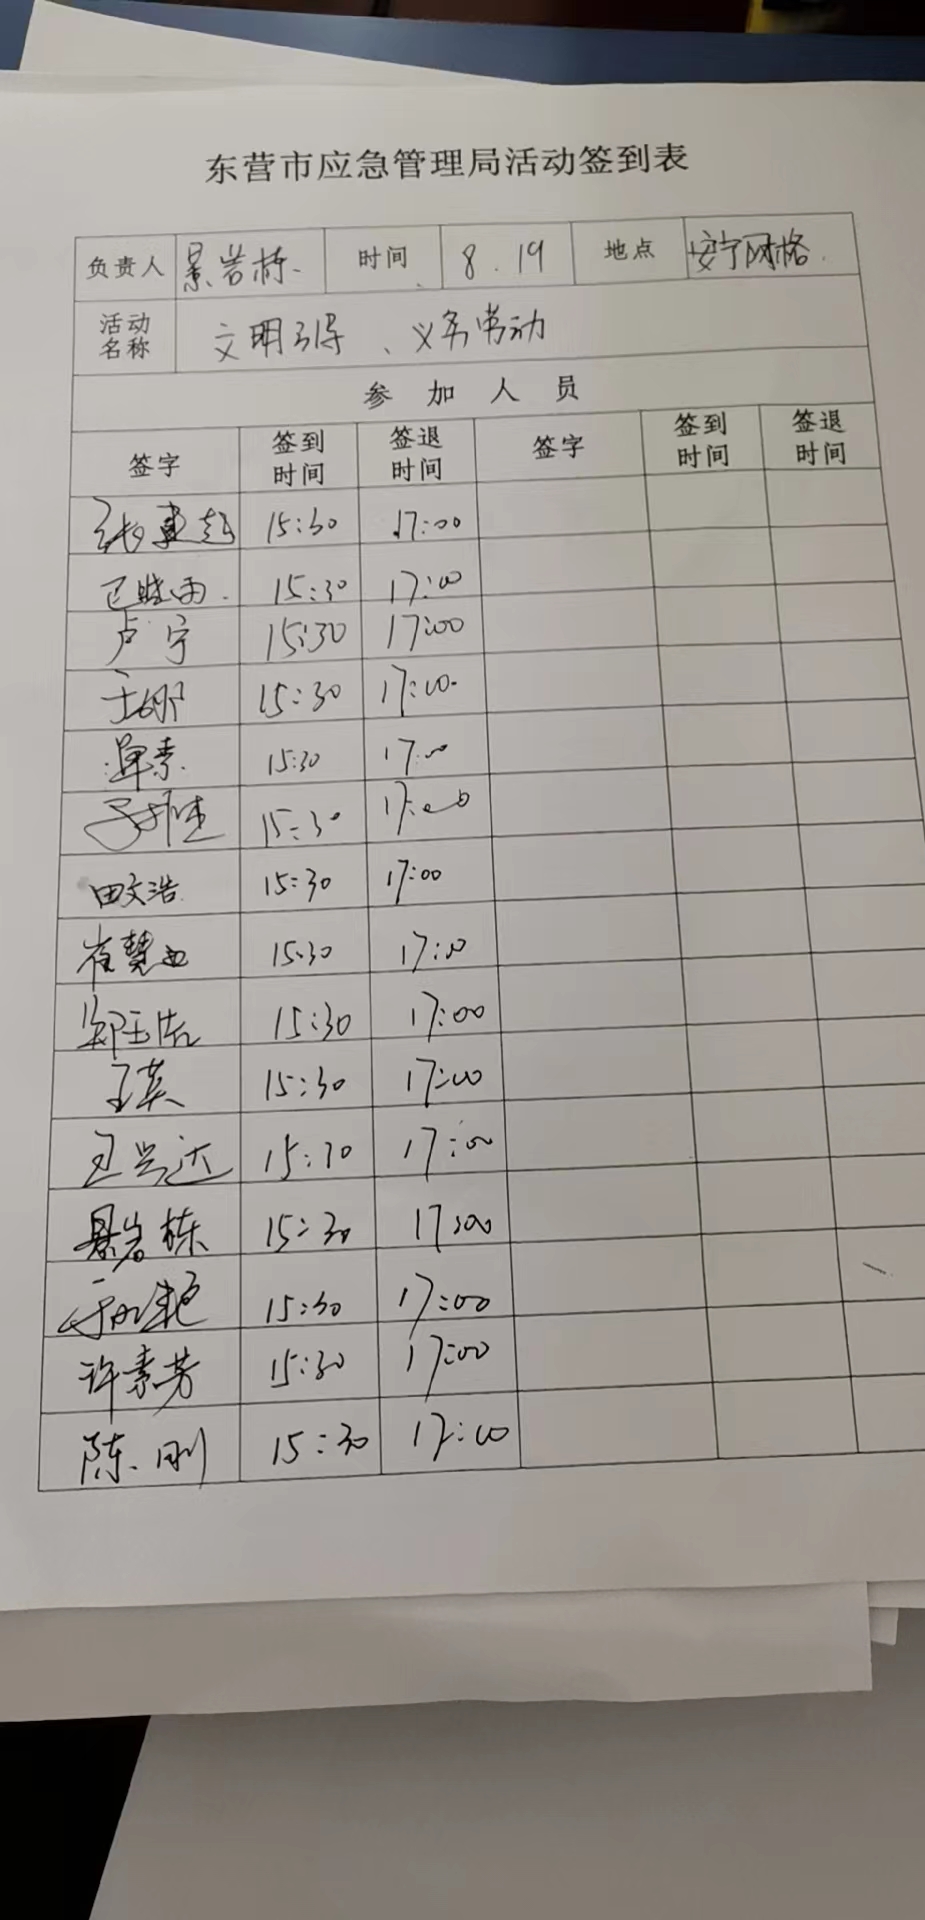 东营市应急管理局活动签到表
负责人 景岩栋 时间 8.19 地点 安宁网格
活动名称 文明引导、义务劳动
参加人员
签字 签到时间 签退时间 签字 签到时间 签退时间
15:30 17:00
15:30 17:00
卢宁 15:30 17:00
王娜 15:30 17:00
单素 15:30 17:00
15:30 17:00
田文浩 15:30 17:00
崔慧 15:30 17:00
郭玉浩 15:30 17:00
王英 15:30 17:00
王兴达 15:30 17:00
景岩栋 15:30 17:00
15:30 17:00
许素芳 15:30 17:00
陈刚 15:30 17:00